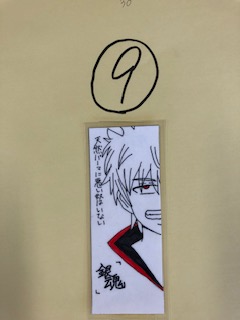 ⑨
天然パーマに悪い奴はいない
「銀魂」